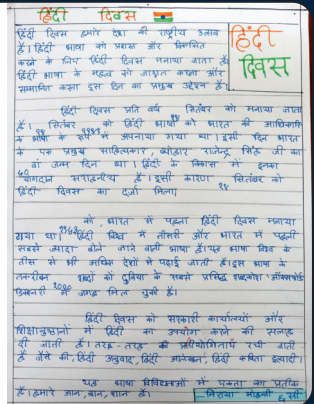 हिंदी दिवस
हिंदी दिवस हमारे देश की राष्ट्रीय उत्सव
है। हिंदी भाषा को प्रयास और विकसित
करने के लिए हिंदी दिवस मनाया जाता है
हिंदी भाषा के महत्व को जागृत करना और
सम्मानित करना इस दिन का प्रमुख उद्देश्य है।
हिंदी
दिवस
हिंदी दिवस प्रति वर्ष १४ सितंबर को मनाया जाता
है। १४ सितंबर को हिंदी भाषा को भारत की आधिकारिक
के रूप में अपनाया गया था। इसी दिन भारत
के एक प्रमुख साहित्यकार, राजेन्द्र सिंह जी का
वां जन्म दिन था। हिंदी के विकास में इनका
योगदान सराहनीय है। इसी कारण १४ सितंबर को
हिंदी दिवस का दर्जा मिला।
को, भारत में पहला हिंदी दिवस मनाया
गया था। हिंदी विश्व में तीसरी और भारत में पहली
सबसे ज्यादा बोले जाने वाली भाषा है। यह भाषा विश्व के
तीस से भी अधिक देशों में पढ़ाई जाती है। इस भाषा के
तकरीबन शब्दों को दुनिया के सबसे प्रसिद्ध शब्दकोश
डिक्शनरी में जगह मिल चुकी है।
हिंदी दिवस को सरकारी कार्यालयों और
में हिंदी का उपयोग करने की सलाह
दी जाती है। तरह-तरह की प्रतियोगिताएँ रची जाती
है जैसे की, हिंदी अनुवाद, हिंदी हिंदी कविता इत्यादी।
यह भाषा विविधताओं में एकता का प्रतीक
है। हमारे जान, बान, शान है।